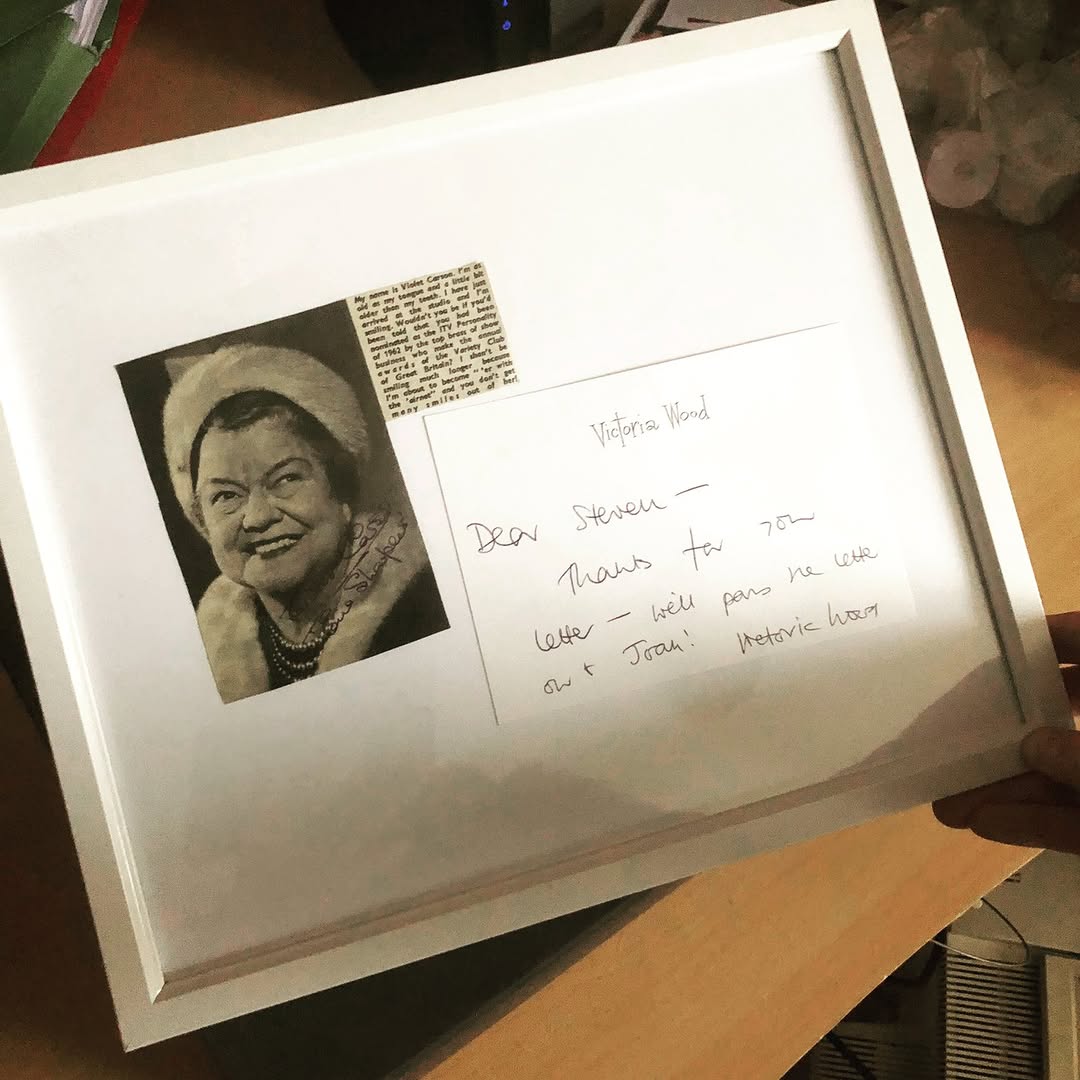 My name is Violet Carson. I'm as
old as my tongue and a little bit
older than my teeth. I have just
arrived at the studio and I'm
smiling. Wouldn't you be if you'd
been told that you had been
nominated as the ITV Personality
of 1962 by the top brass of show
business who make the annual
awards of the Variety Club
of Great Britain? I shan't be
smiling much longer because
I'm about to become "'er with
the 'airnet" and you don't get
many smiles out of her!
Victoria Wood
Dear Steven —
Thanks for your
letter — we'll pass the letter
on to Joan! Victoria Wood
Sharples